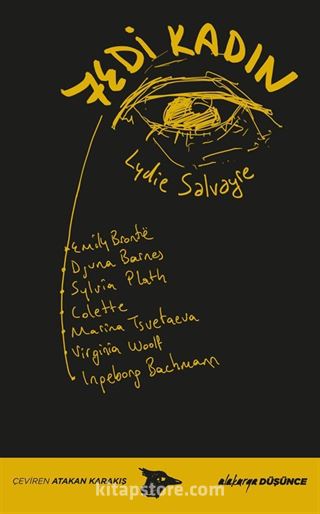 7EDİ KADIN
Lydie Salvayre
Emily Brontë
Djuna Barnes
Sylvia Plath
Colette
Marina Tsvetaeva
Virginia Woolf
Ingeborg Bachmann
ÇEVİREN ATAKAN KARAKIŞ
alakarga DÜŞÜNCE
kitapstore.com